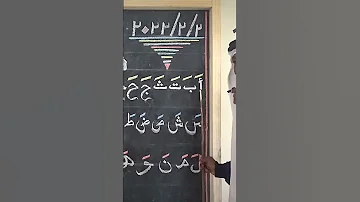 ٢٠٢٢/٢/٢
أَ بَ تَ ثَ جَ حَ
سَ شَ صَ ضَ طَ
لَ مَ نَ وَ هَ